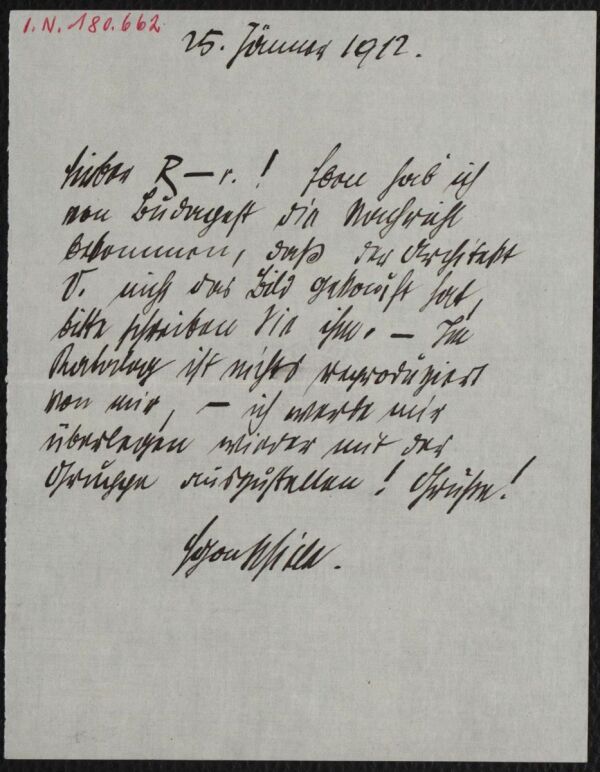 I.N. 180.662
25. Jänner 1912.
Lieber R—r.! Eben hab ich
von Budapest die Nachricht
bekommen, daß der Architekt
V. nicht das Bild gekauft hat,
bitte schreiben Sie ihm. – Im
Katalog ist nichts reproduziert
von mir, – ich werde mir
überlegen wieder mit der
Gruppe auszustellen! Grüße!
Egon Schiele.